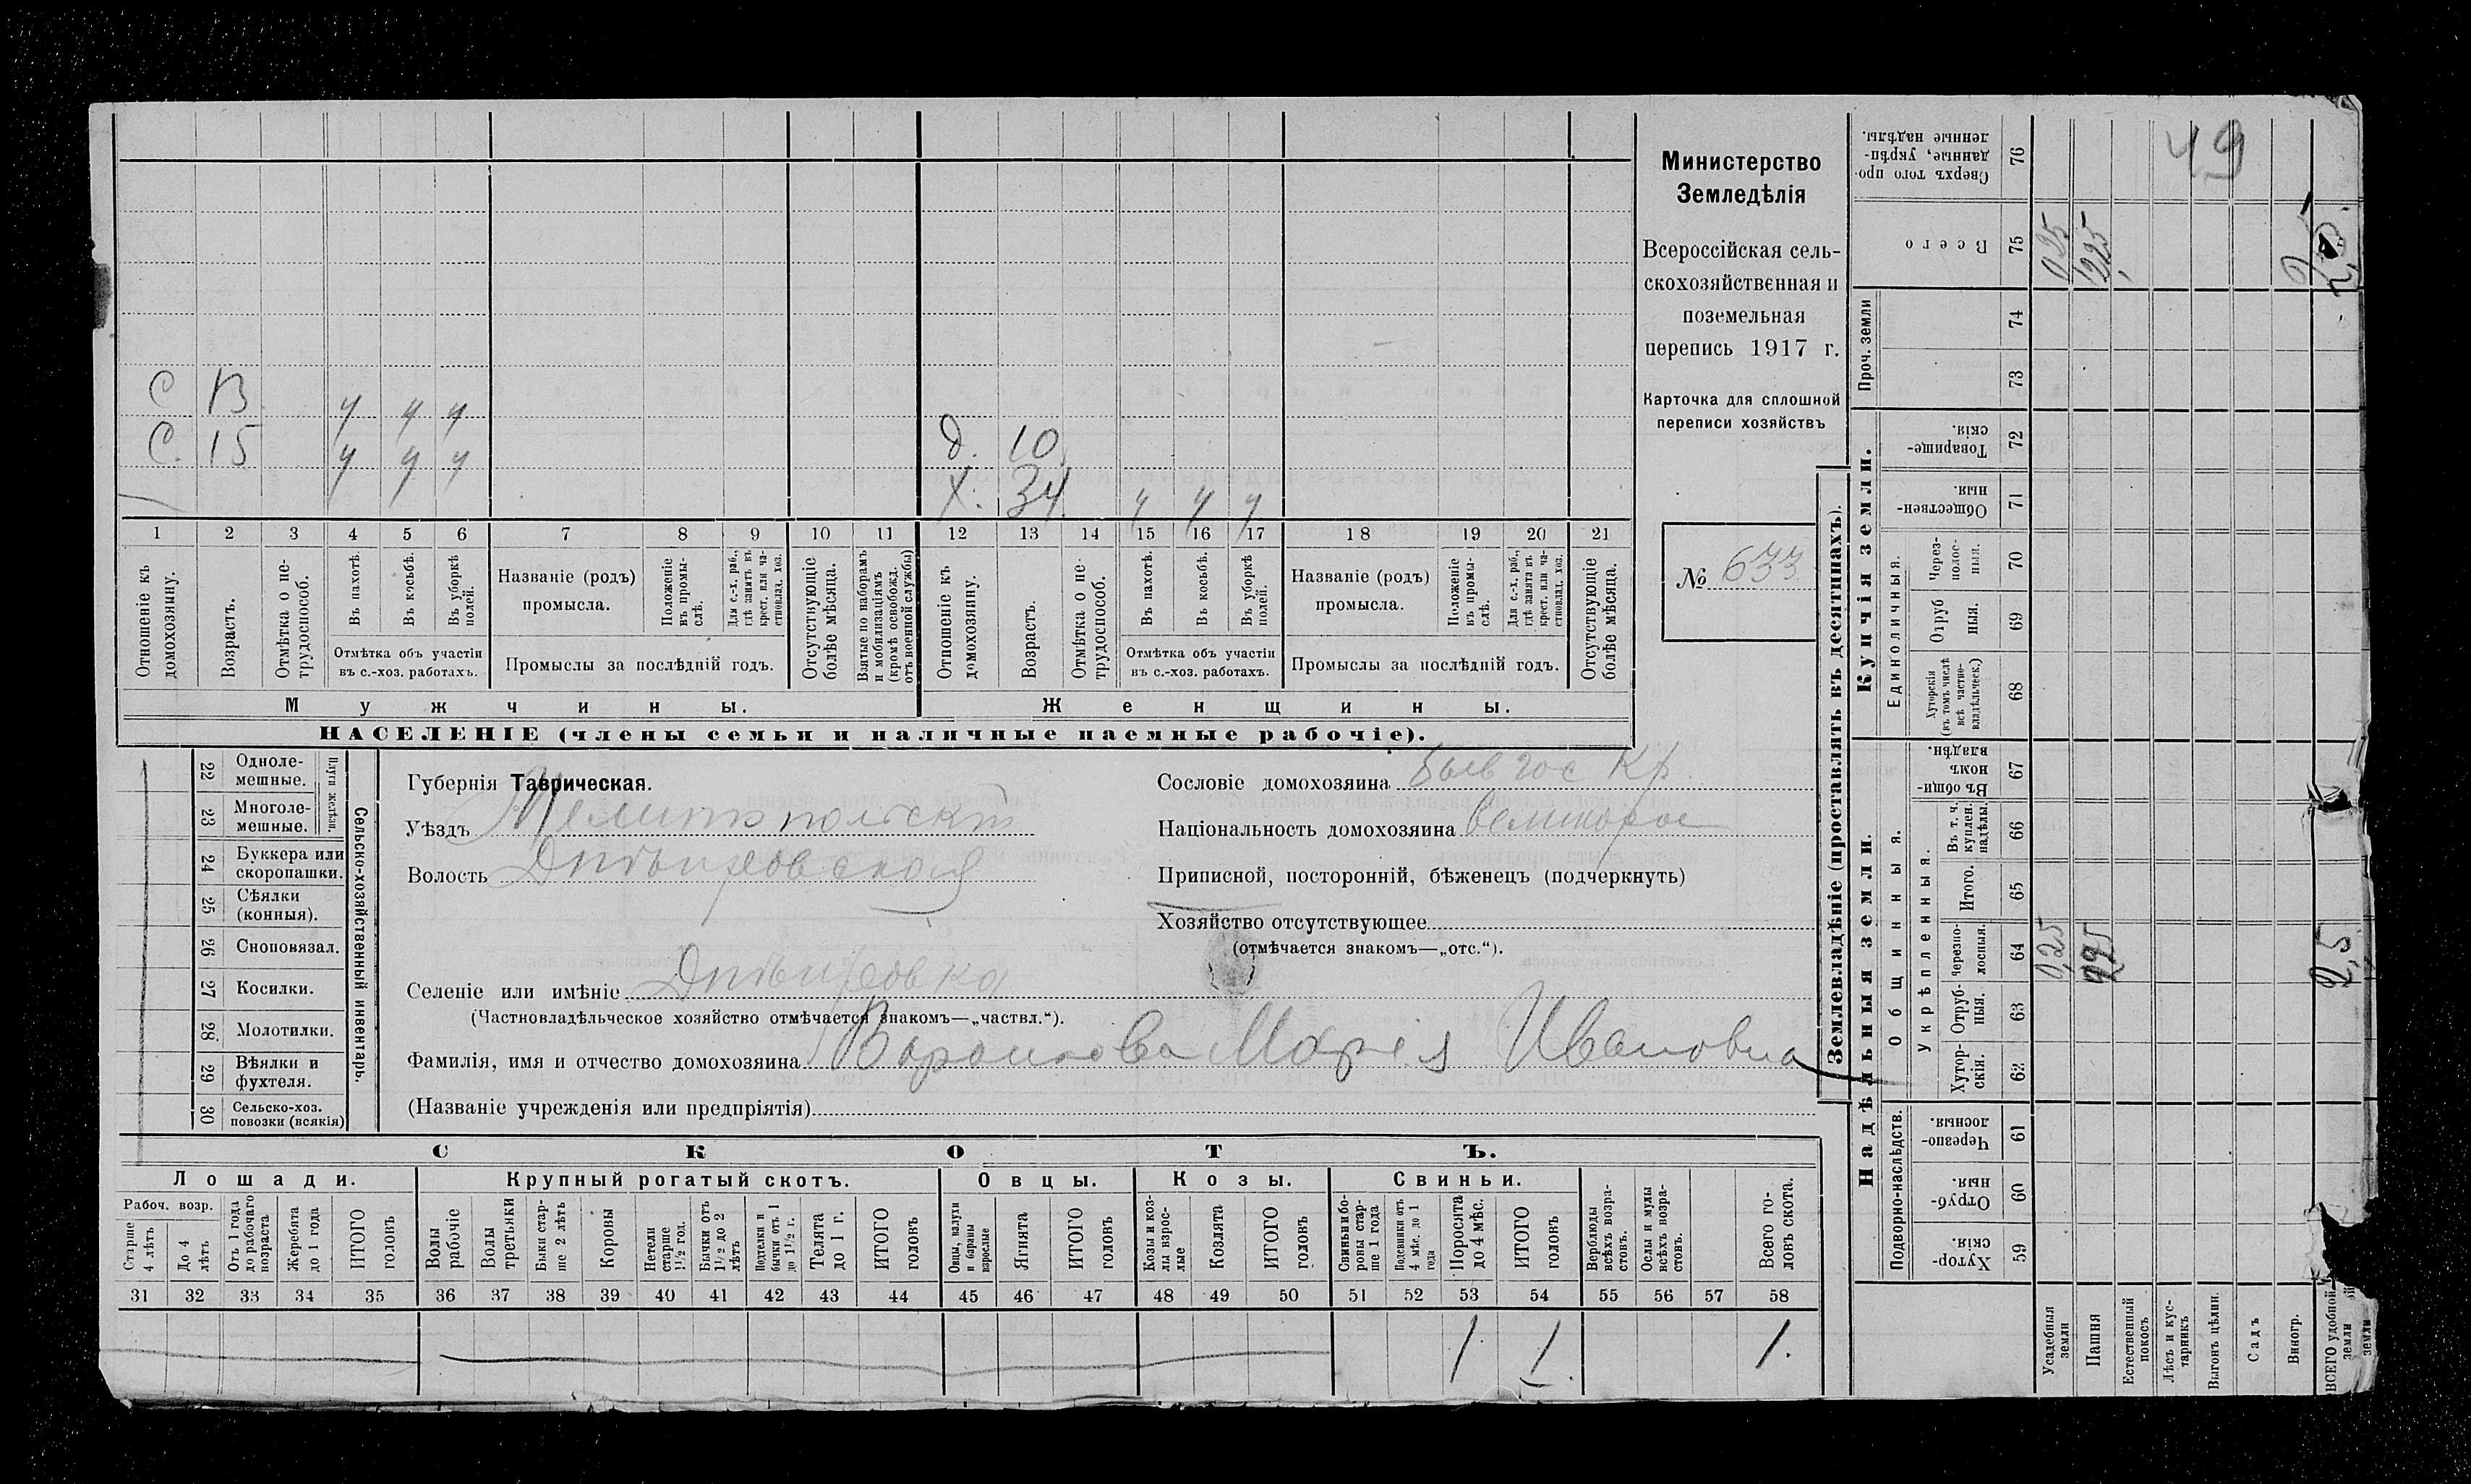 Министерство
Земледѣлія
Всероссійская сель-
скохозяйственная и
поземельная
перепись 1917 г.
Карточка для сплошной
переписи хозяйствъ
№ 633
49
С 13 ч ч ч
С. 15 ч ч ч д. 10
Х. 34 ч ч ч
1 2 3 4 5 6 7 8 9 10 11 12 13 14 15 16 17 18 19 20 21
Отношеніе къ домохозяину.
Возрастъ.
Отмѣтка о не-трудоспособ.
Въ пахотѣ.
Въ косьбѣ.
Въ уборкѣ полей.
Отмѣтка объ участіи
въ с.-хоз. работахъ.
Названіе (родъ)
промысла.
Положеніе въ промы-слѣ.
Для с.-х. раб., гдѣ занятъ въ крест. или ча-стновлад. хоз.
Промыслы за послѣдній годъ.
Отсутствующіе болѣе мѣсяца.
Взятые по наборамъ и мобилизаціямъ (кромѣ освобожд. отъ военной службы)
Отношеніе къ домохозяину.
Возрастъ.
Отмѣтка о не-трудоспособ.
Въ пахотѣ.
Въ косьбѣ.
Въ уборкѣ полей.
Отмѣтка объ участіи
въ с.-хоз. работахъ.
Названіе (родъ)
промысла.
Положеніе въ промы-слѣ.
Для с.-х. раб., гдѣ занята въ крест. или ча-стновлад. хоз.
Промыслы за послѣдній годъ.
Отсутствующіе болѣе мѣсяца.
Мужчины. Женщины.
НАСЕЛЕНІЕ (члены семьи и наличные наемные рабочіе).
22 Одноле-мешные.
23 Многоле-мешные.
Плуги желѣзн.
24 Буккера или скоропашки.
25 Сѣялки (конныя).
26 Сноповязал.
27 Косилки.
28 Молотилки.
29 Вѣялки и фухтеля.
30 Сельско-хоз. повозки (всякія)
Сельско-хозяйственный инвентарь.
Губернія Таврическая.
Уѣздъ Мелитопольскій
Волость Днѣпровская
Селеніе или имѣніе Днѣпровка
(Частновладѣльческое хозяйство отмѣчается знакомъ—„частвл.“).
Фамилія, имя и отчество домохозяина Воронова Марія Ивановна
(Названіе учрежденія или предпріятія)
Сословіе домохозяина Быв гос Кр.
Національность домохозяина великорос
Приписной, посторонній, бѣженецъ (подчеркнуть)
Хозяйство отсутствующее
(отмѣчается знакомъ—„отс.“).
СКОТЪ.
Лошади. Крупный рогатый скотъ. Овцы. Козы. Свиньи.
Рабоч. возр.
Старше 4 лѣтъ
До 4 лѣтъ
Отъ 1 года до рабочаго возраста
Жеребята до 1 года
ИТОГО головъ
Волы рабочіе
Волы третьяки
Быки стар-ше 2 лѣтъ
Коровы
Нетели старше 1½ год.
Бычки отъ 1½ до 2 лѣтъ
Подтелки и бычки отъ 1 до 1½ г.
Телята до 1 г.
ИТОГО головъ
Овцы, валухи и бараны взрослые
Ягнята
ИТОГО головъ
Козы и коз-лы взрос-лые
Козлята
ИТОГО головъ
Свиньи и бо-ровы стар-ше 1 года
Подсвинки отъ 4 мѣс. до 1 года
Поросята до 4 мѣс.
ИТОГО головъ
Верблюды всѣхъ возра-стовъ.
Ослы и мулы всѣхъ возра-стовъ.
Всего го-ловъ скота.
31 32 33 34 35 36 37 38 39 40 41 42 43 44 45 46 47 48 49 50 51 52 53 54 55 56 57 58
1 1 1.
Землевладѣніе (проставлять въ десятинахъ).
Надѣльныя земли. Купчія земли. Проч. земли
Подворно-наслѣдств.
Общинныя.
Укрѣпленныя.
Единоличныя.
59 Хутор-скія.
60 Отруб-ныя.
61 Черезпо-лосныя.
62 Хутор-скія.
63 Отруб-ныя.
64 Черезпо-лосныя. 0,25 2,25 2,5
65 Итого.
66 Въ т. ч. куплен. надѣлы.
67 Въ общи-номъ владѣн.
68 Хуторскія (въ томъ числѣ всѣ частно-владѣльческ.)
69 Отруб ныя.
70 Через-полос-ныя.
71 Обществен-ныя.
72 Товарище-скія.
73
74
75 Всего 0,25 2,25 2,5
76 Сверхъ того про-данные, укрѣп-ленные надѣлы.
Усадебныя земли
Пашня
Естественный покосъ
Лѣсъ и кус-тарникъ
Выгонъ цѣлин.
Садъ
Виногр.
ВСЕГО удобной земли